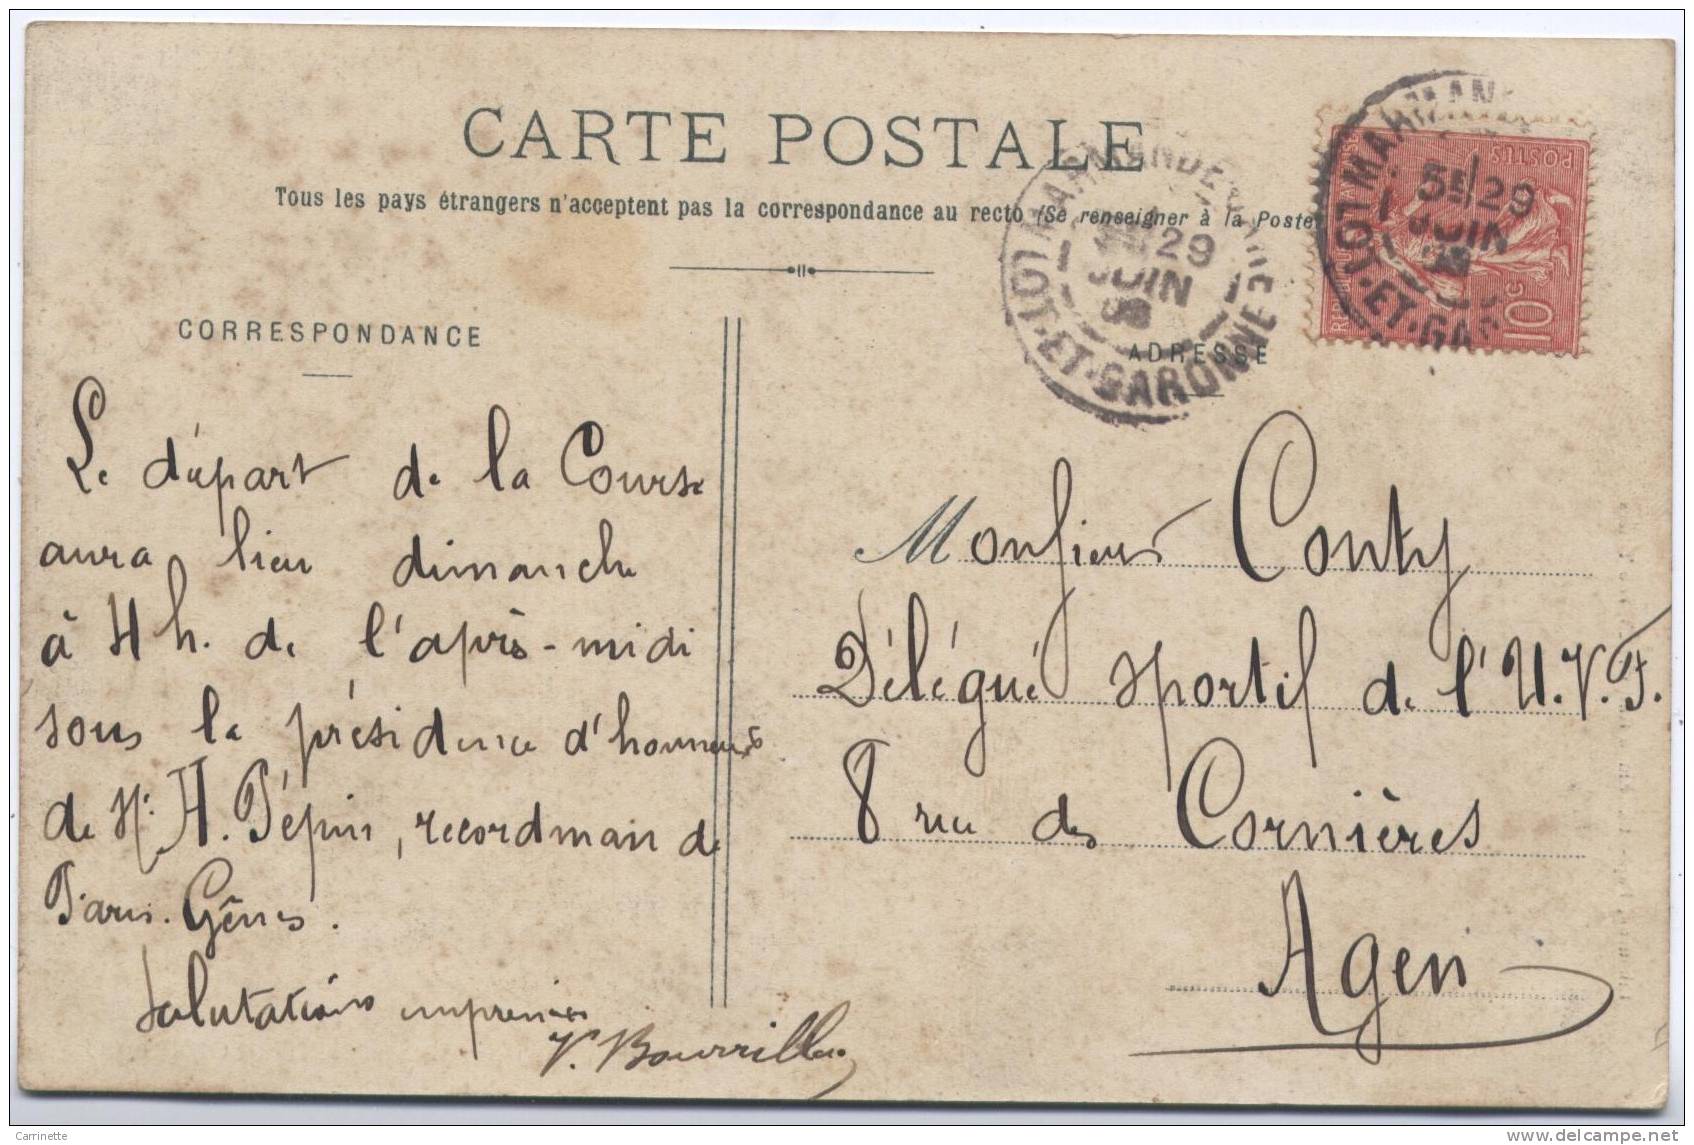 CARTE POSTALE
Tous les pays étrangers n'acceptent pas la correspondance au recto (Se renseigner à la Poste
CORRESPONDANCE
Le départ de la Course
aura lieu dimanche
à 4 h. de l'après-midi
sous la présidence d'honneur
de M. H. Pépin, recordman de
Paris-Gênes.
Salutations empressées
V. Bourrillon
ADRESSE
Monsieur Conty
Délégué sportif de l'U.V.F.
8 rue des Cornières
Agen
MARMANDE
29
JUIN
LOT-ET-GARONNE
MARMAN
5E/29
JUIN
LOT-ET-GAR
POSTES
10c
Carrinette
www.delcampe.net